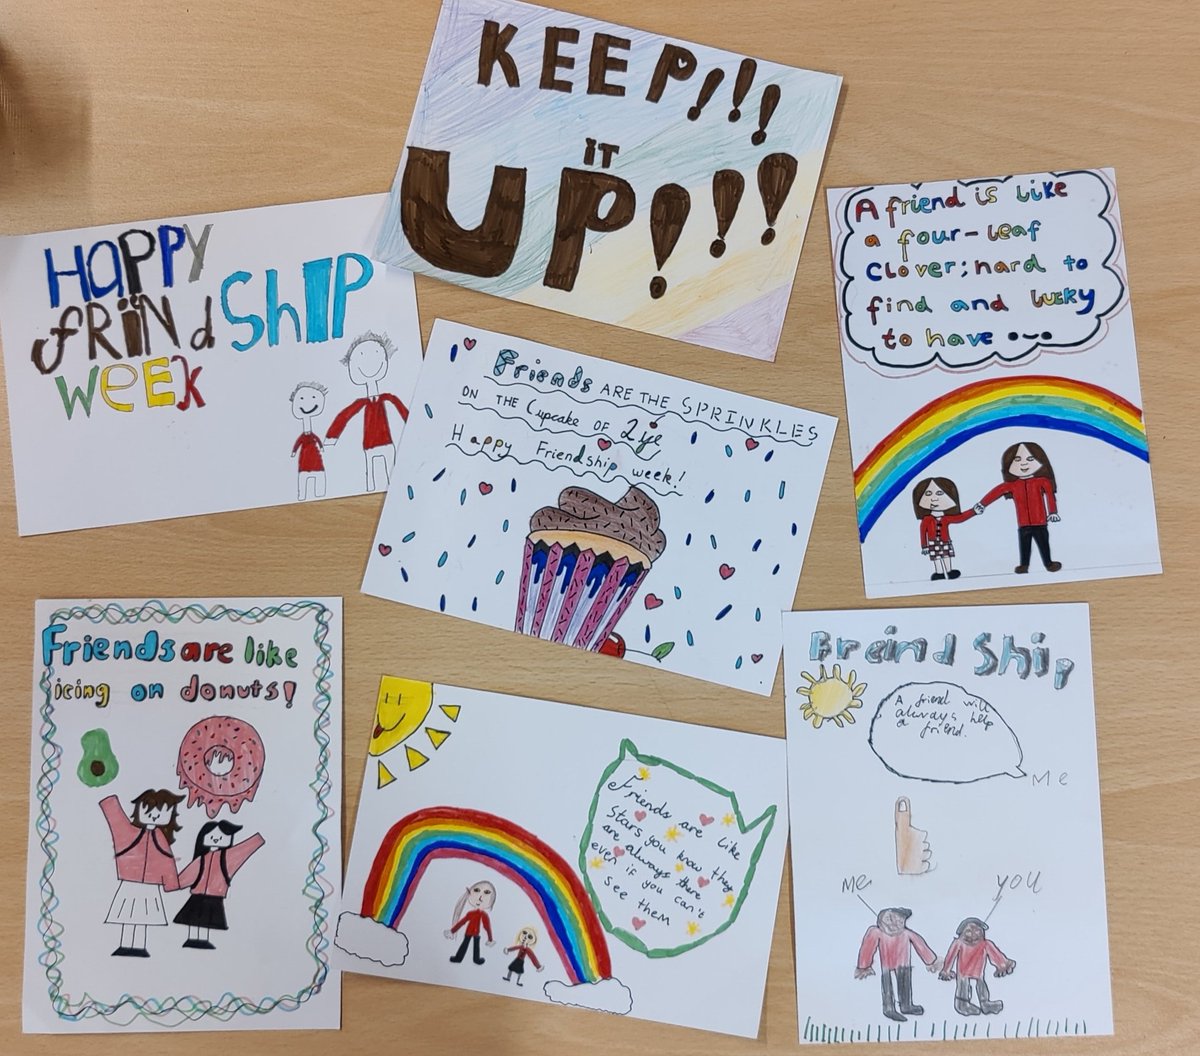 KEEP!!!
iT
UP!!!
HaPPY
fRiNd ShIP
Week
A friend is like
a four-leaf
Clover; hard to
find and lucky
to have ...
Friends ARE THE SPRINKLES
ON THE Cupcake OF Life
Happy Friendship week!
Friends are like
icing on donuts!
Friends are like
Stars you know they
are always there
even if you can't
see them
Braind Ship
A friend will
always help
a friend.
Me
Me
you